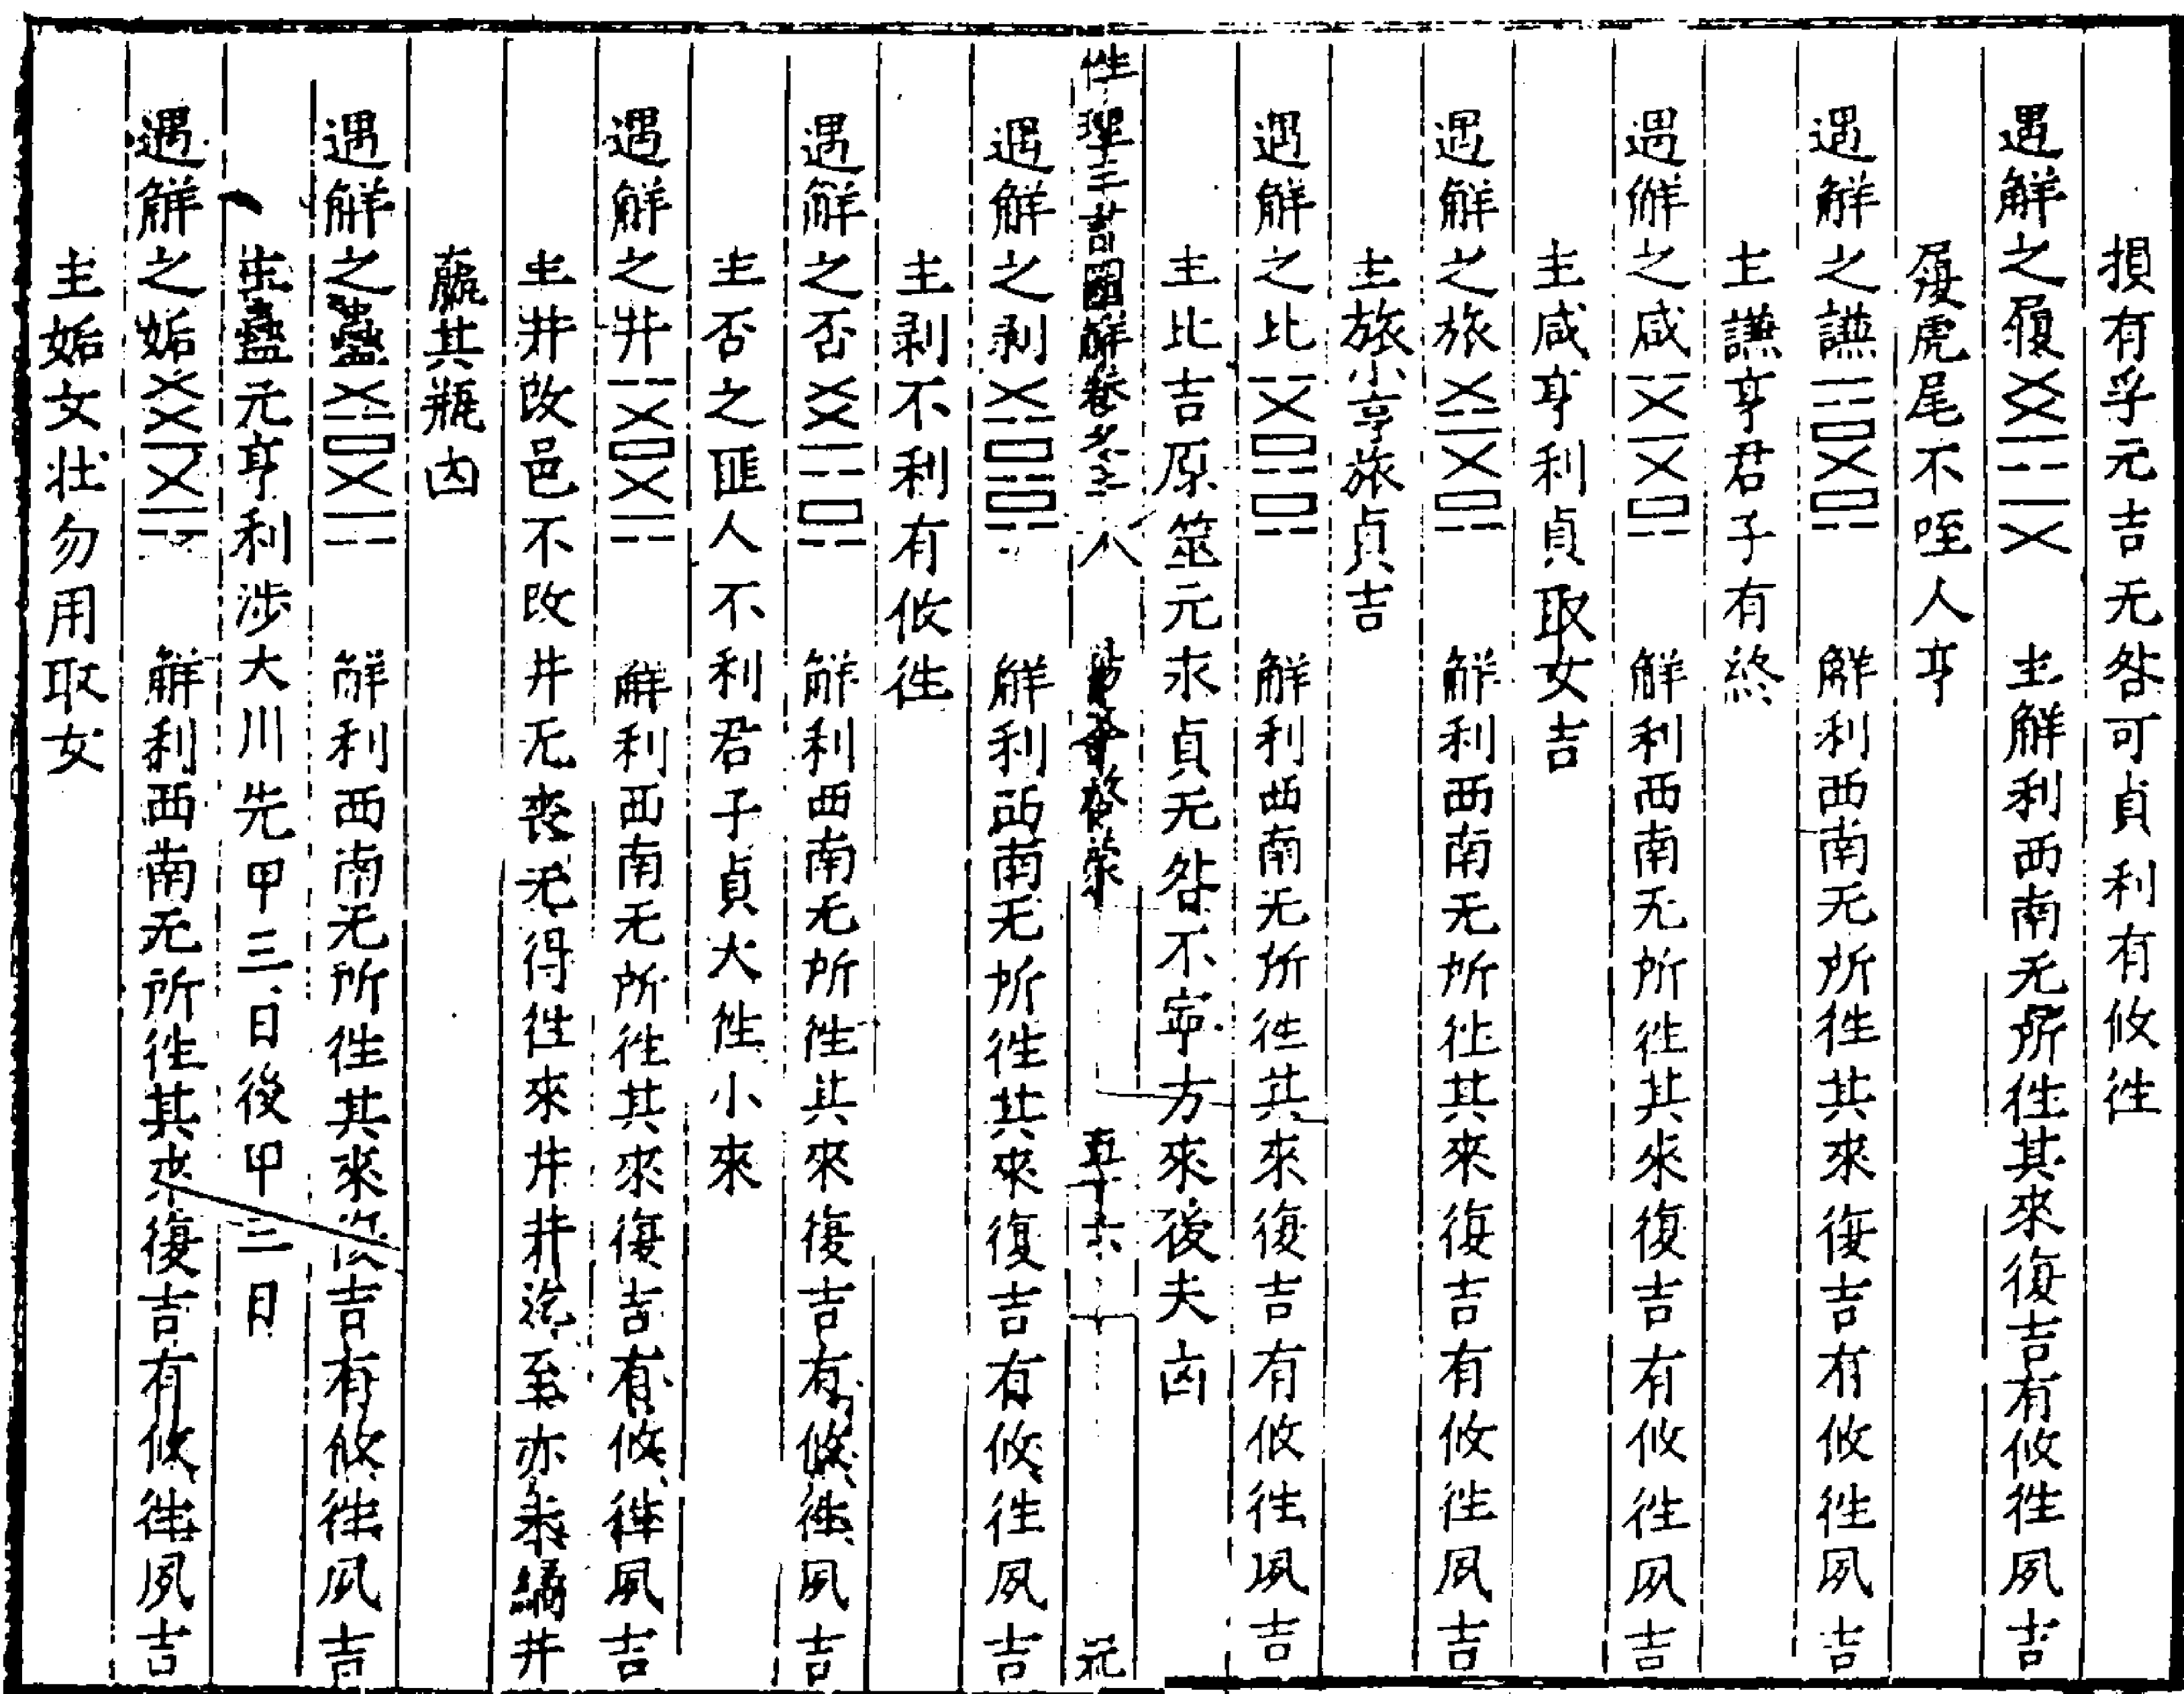 損有孚元吉无咎可貞利有攸徃
遇觧之履 主觧利西南无所徃其來復吉有攸徃夙吉
履虎尾不咥人亨
遇觧之謙 觧利西南无所徃其來復吉有攸徃夙吉
主謙亨君子有終
遇觧之咸 觧利西南无所徃其來復吉有攸徃夙吉
主咸亨利貞取女吉
遇觧之旅 觧利西南无所徃其來復吉有攸徃夙吉
主旅小亨旅貞吉
遇觧之比 觧利西南无所徃其來復吉有攸徃夙吉
主比吉原筮元永貞无咎不寧方來後夫凶
性理三書圖觧卷之 八 啓蒙 五十六 元
遇觧之剥 觧利西南无所徃其來復吉有攸徃夙吉
主剥不利有攸徃
遇觧之否 觧利西南无所徃其來復吉有攸徃夙吉
主否之匪人不利君子貞大徃小來
遇觧之井 觧利西南无所徃其來復吉有攸徃夙吉
主井改邑不改井无喪无得徃來井井汔至亦未繘井
羸其瓶凶
遇觧之蠱 觧利西南无所徃其來復吉有攸徃夙吉
主蠱元亨利涉大川先甲三日後甲三日
遇觧之姤 觧利西南无所徃其來復吉有攸徃夙吉
主姤女壮勿用取女